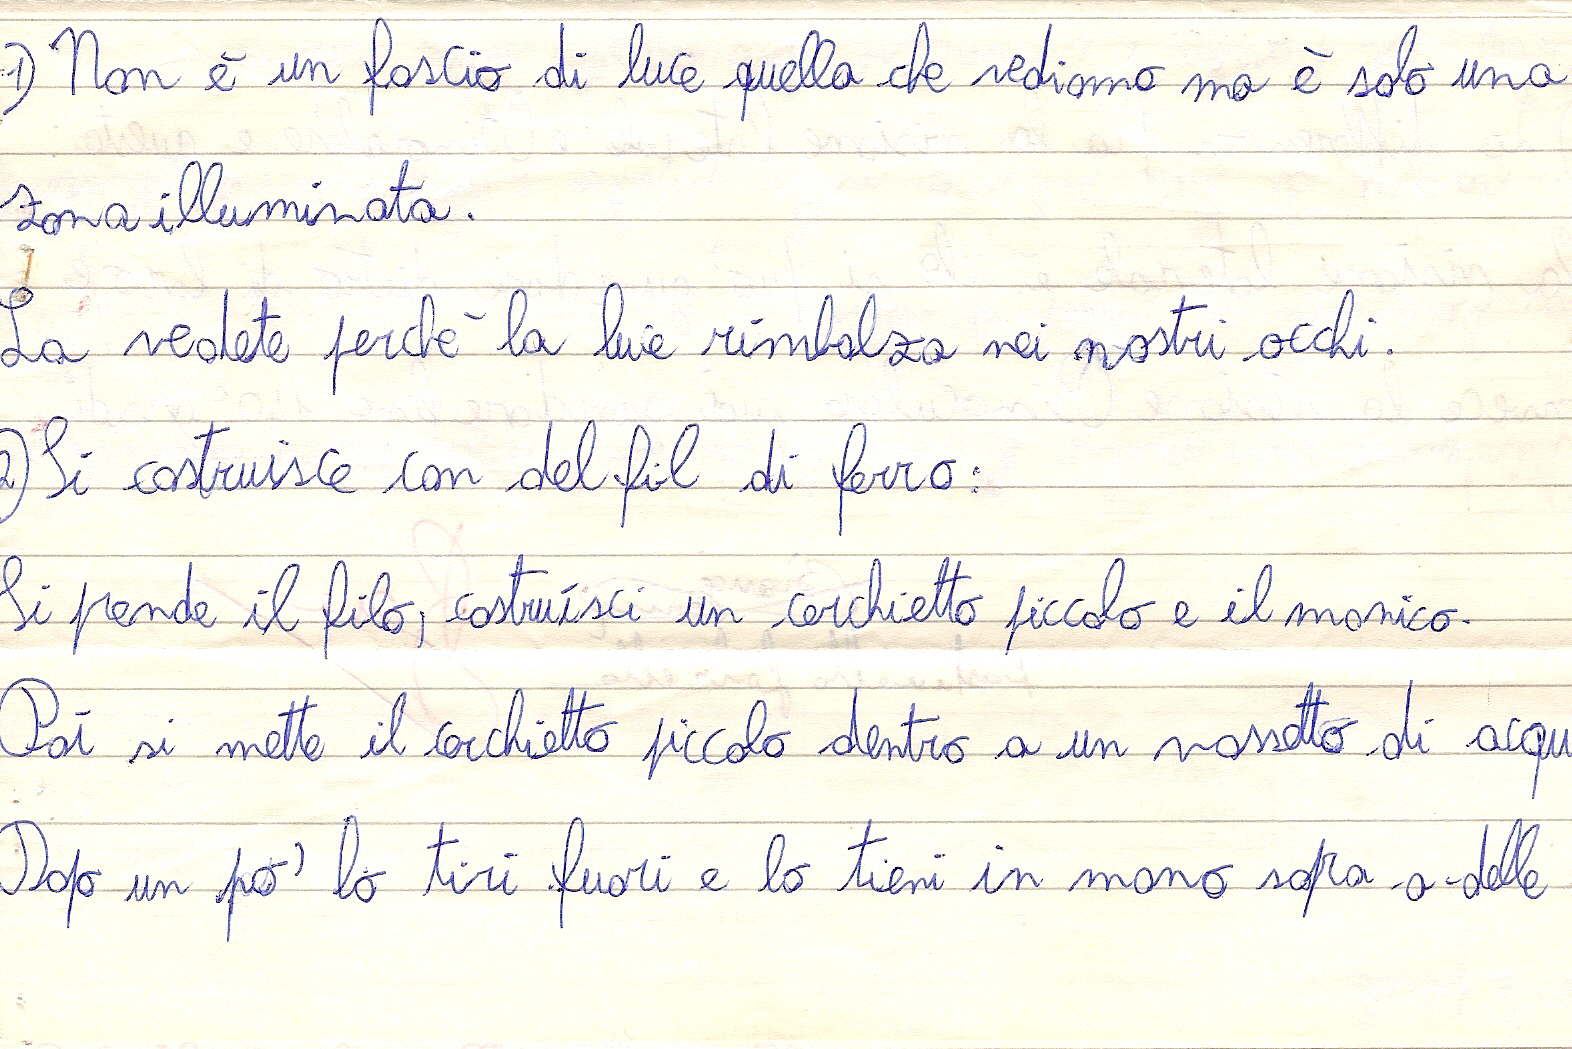 1) Non è un fascio di luce quella che vediamo ma è solo una
zona illuminata.
La vedete perchè la luce rimbalza nei nostri occhi.
2) Si costruisce con del fil di ferro:
Si prende il filo, costruisci un cerchietto piccolo e il manico.
Poi si mette il cerchietto piccolo dentro a un vassetto di acqu
Dopo un pò' lo tiri fuori e lo tieni in mano sopra a delle